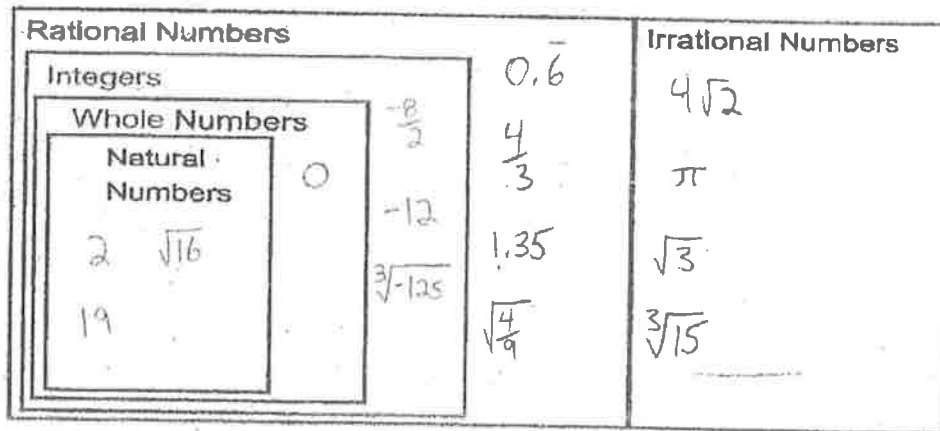 Rational Numbers
Integers
Whole Numbers
Natural
Numbers
2 √16
19
0
-8/2
-12
∛-125
0.6̅
4/3
1.35
√4/9
Irrational Numbers
4√2
π
√3
∛15